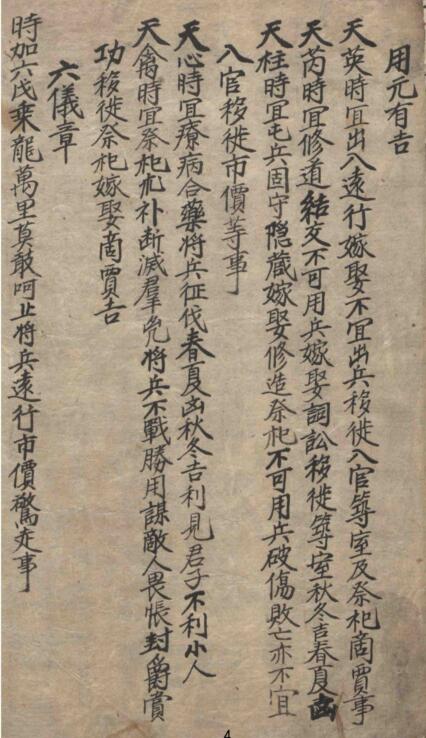 用元有吉
天英時宜出入遠行嫁娶不宜出兵移徙入官築室及祭祀啇賈事
天芮時宜修道結交不可用兵嫁娶詞訟移徙築室秋冬吉春夏凶
天柱時宜屯兵固守隐蔵嫁娶修造祭祀不可用兵破傷敗亡亦不宜
入官移徙市價等事
天心時宜療病合藥將兵征伐春夏凶秋冬吉利見君子不利小人
天禽時宜祭祀求补断滅羣兇將兵不戰勝用謀敵人畏悵封爵賞
功移徙祭祀嫁娶啇賈吉
六儀章
時加六戊乘龍萬里莫敢呵止將兵遠行市價驚走事
4